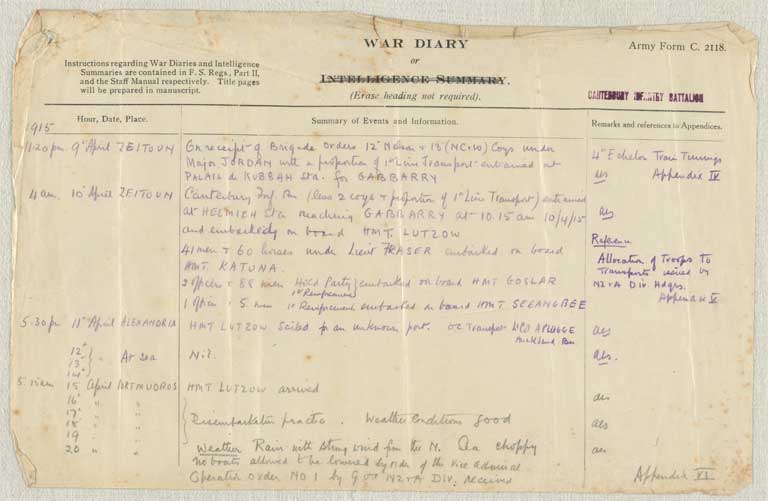 WAR DIARY
or
INTELLIGENCE SUMMARY.
(Erase heading not required).
Army Form C. 2118.
Instructions regarding War Diaries and Intelligence
Summaries are contained in F. S. Regs., Part II,
and the Staff Manual respectively. Title pages
will be prepared in manuscript.
CANTERBURY INFANTRY BATTALION
Hour, Date, Place.
Summary of Events and Information.
Remarks and references to Appendices.
1915
11.20 pm 9th April ZEITOUN
On receipt of Brigade Orders 12th Nelson & 13 (NC&W) Coys under
Major JORDAN with a proportion of 1st Line Transport entrained at
PALAIS de KUBBAH Sta. for GABBARRY
4th Echelon Train Timings
Appendix IV
4 am 10 April ZEITOUN
Canterbury Inf. Bn (less 2 coys & proportion of 1st Line Transport) entrained
at HELMIEH Sta reaching GABBARRY at 10.15 am 10/4/15
and embarked on board HMT. LUTZOW
41 men & 60 horses under Lieut FRASER embarked on board
HMT. KATUNA.
2 officers & 88 men Held Party embarked on board HMT GOSLAR
1st Reinforcement
1 officer & 5 men 1st Reinforcement embarked on board HMT SEEANGBEE
Reference
Allocation of Troops to
Transports issued by
NZ&A Div. Hdqrs.
Appendix V
5.30 pm 11th April ALEXANDRIA
HMT LUTZOW Sailed for an unknown port. OC Transport PLUGGE
Auckland Bn
12th
13th At sea
14th
Nil.
5.15 am 15 April PORT MUDROS
HMT LUTZOW arrived
16 " "
17 " "
18 " "
19 " "
Disembarkation practice. Weather Conditions good
20 " "
Weather Rain with strong wind from the N. Sea choppy
No boats allowed to be lowered by order of the Vice Admiral
Operation Order No 1 by GOC NZ&A DIV. received
Appendix VI